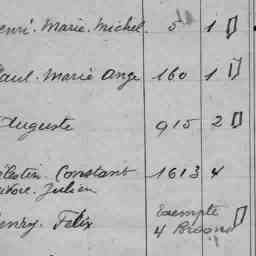 enri. Marie. Michel. 5 1
Paul. Marie Ange 160 1
Auguste 915 2
élestin. Constant 1613 4
Julien
enry. Felix Exempté
4